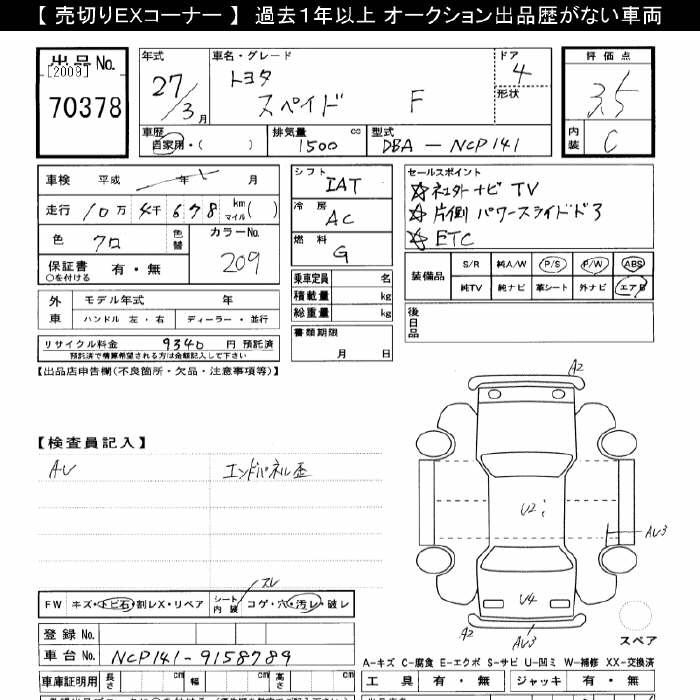 【 売切りEXコーナー 】 過去1年以上 オークション出品歴がない車両
出品No. [2009] 70378
年式 27/3月
車名・グレード トヨタ スペイド F
ドア 4
形状
評価点 3.5
内装 C
車歴 自家用・( )
排気量 1500 cc
型式 DBA - NCP141
車検 平成 年 月
走行 10万 4千678 km マイル( )
色 クロ 色替
カラーNo. 209
保証書 有・無
○を付ける
シフト IAT
冷房 AC
燃料 G
乗車定員 名
積載量 kg
総重量 kg
書類期限 月 日
セールスポイント
☆ 社外ナビ TV
☆ 片側 パワースライドドア
☆ ETC
装備品 S/R 純A/W P/S P/W ABS
純TV 純ナビ 革シート 外ナビ エアB
後日品
外車 モデル年式 年
ハンドル 左・右 ディーラー・並行
リサイクル料金 9340 円 預託済
預託済で積算希望される方は金額記入して下さい
【出品店申告欄(不良箇所・欠品・注意事項等)】
【検査員記入】
AU エンドパネル歪
A2
U2
AU3
U4
A2 AU3
スペア
FW キズ・トビ石・割レX・リペア シート内装 コゲ・穴・汚レ・破レ
スレ
登録No.
車台No. NCP141-9158789
A-キズ C-腐食 E-エクボ S-サビ U-凹ミ W-補修 XX-交換済
車庫証明用 長さ cm 幅 cm 高さ cm
工具 有・無 ジャッキ 有・無